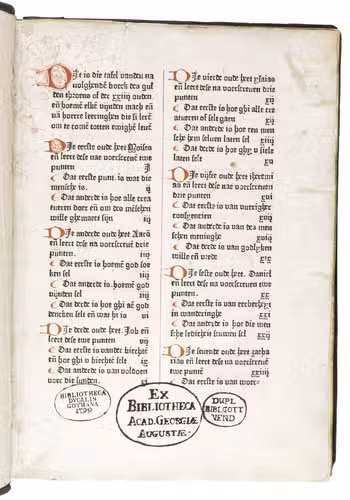 Die is die tafel vanden na
volghende boeck des gul
den throens of der xxiiij ouden
en hoemē elke vijnden mach en̄
vā hoerre leeringhen die si leerē
om te comē totten ewighē leuē
Die eerste oude here Moises
en̄ leert dese na voerscreuē twe
punten ij
Dat eerste punt. is wat die
mensche is. ij
Dat anderde is hoe alle crea
tueren doer en̄ om des mēschen
wille ghemaect sijn iij
Die anderde oude here Aarō
en̄ leert dese na voerscreuē drie
punten. iiij
Dat eerste is hoemē god soe
ken sel iiij
Dat anderde is. hoemen god
vijnden sel iiij
Dat derde is hoe ghi aē god
dencken selt en̄ wat hi is vi
Die derde oude heer. Job en̄
leert dese twe punten vij
Dat eerste is vander biechtē
en̄ hoe ghi v biechtē selt ix
Dat anderde is van voldoen
voer die sunden. xi
Die vierde oude heer ysaias
en̄ leert dese na voerscreuē drie
punten xij
Dat eerste is hoe ghi alle cre
atueren of sels gaen xij
Dat anderde is hoe een men
sche hem seluen laten sel xiij
Dat derde is hoe ghi v siele
laten sele xv
Die vijfte oude heer iheremi
as en̄ leert dese na voerscreuen
drie punten xvi
Dat eerste is van vuerighe
consciencien xvi
Dat anderde is van des men
schen meninghe xvij
Dat derde is van godlyken
wille en̄ vrede xix
Die seste oude heer. Daniel
en̄ leert dese na voerscreuen twe
punten. xx
Dat eerste is van eerbeerheyt
in wanderinghe xx
Dat anderde is hoe die men
sche ledicheit scuwen sel xxij
Die seuende oude heer zacha
rias en̄ leert dese na voerscreuē
twe punten xxiij
Dat eerste is van woer-
BIBLIOTHECA
DVCALIS
GOTHANA.
1799
EX
BIBLIOTHECA
ACAD. GEORGIÆ
AUGUSTÆ.
DUPL
BIBL. GOTT
VEND